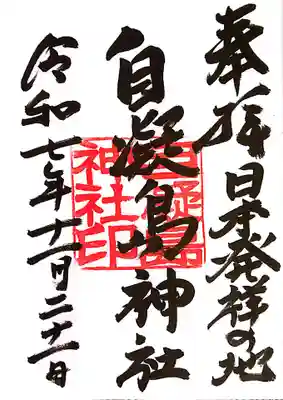 奉拝 日本発祥の地
自凝島神社
令和七年十一月二十一日
自凝島
神社印